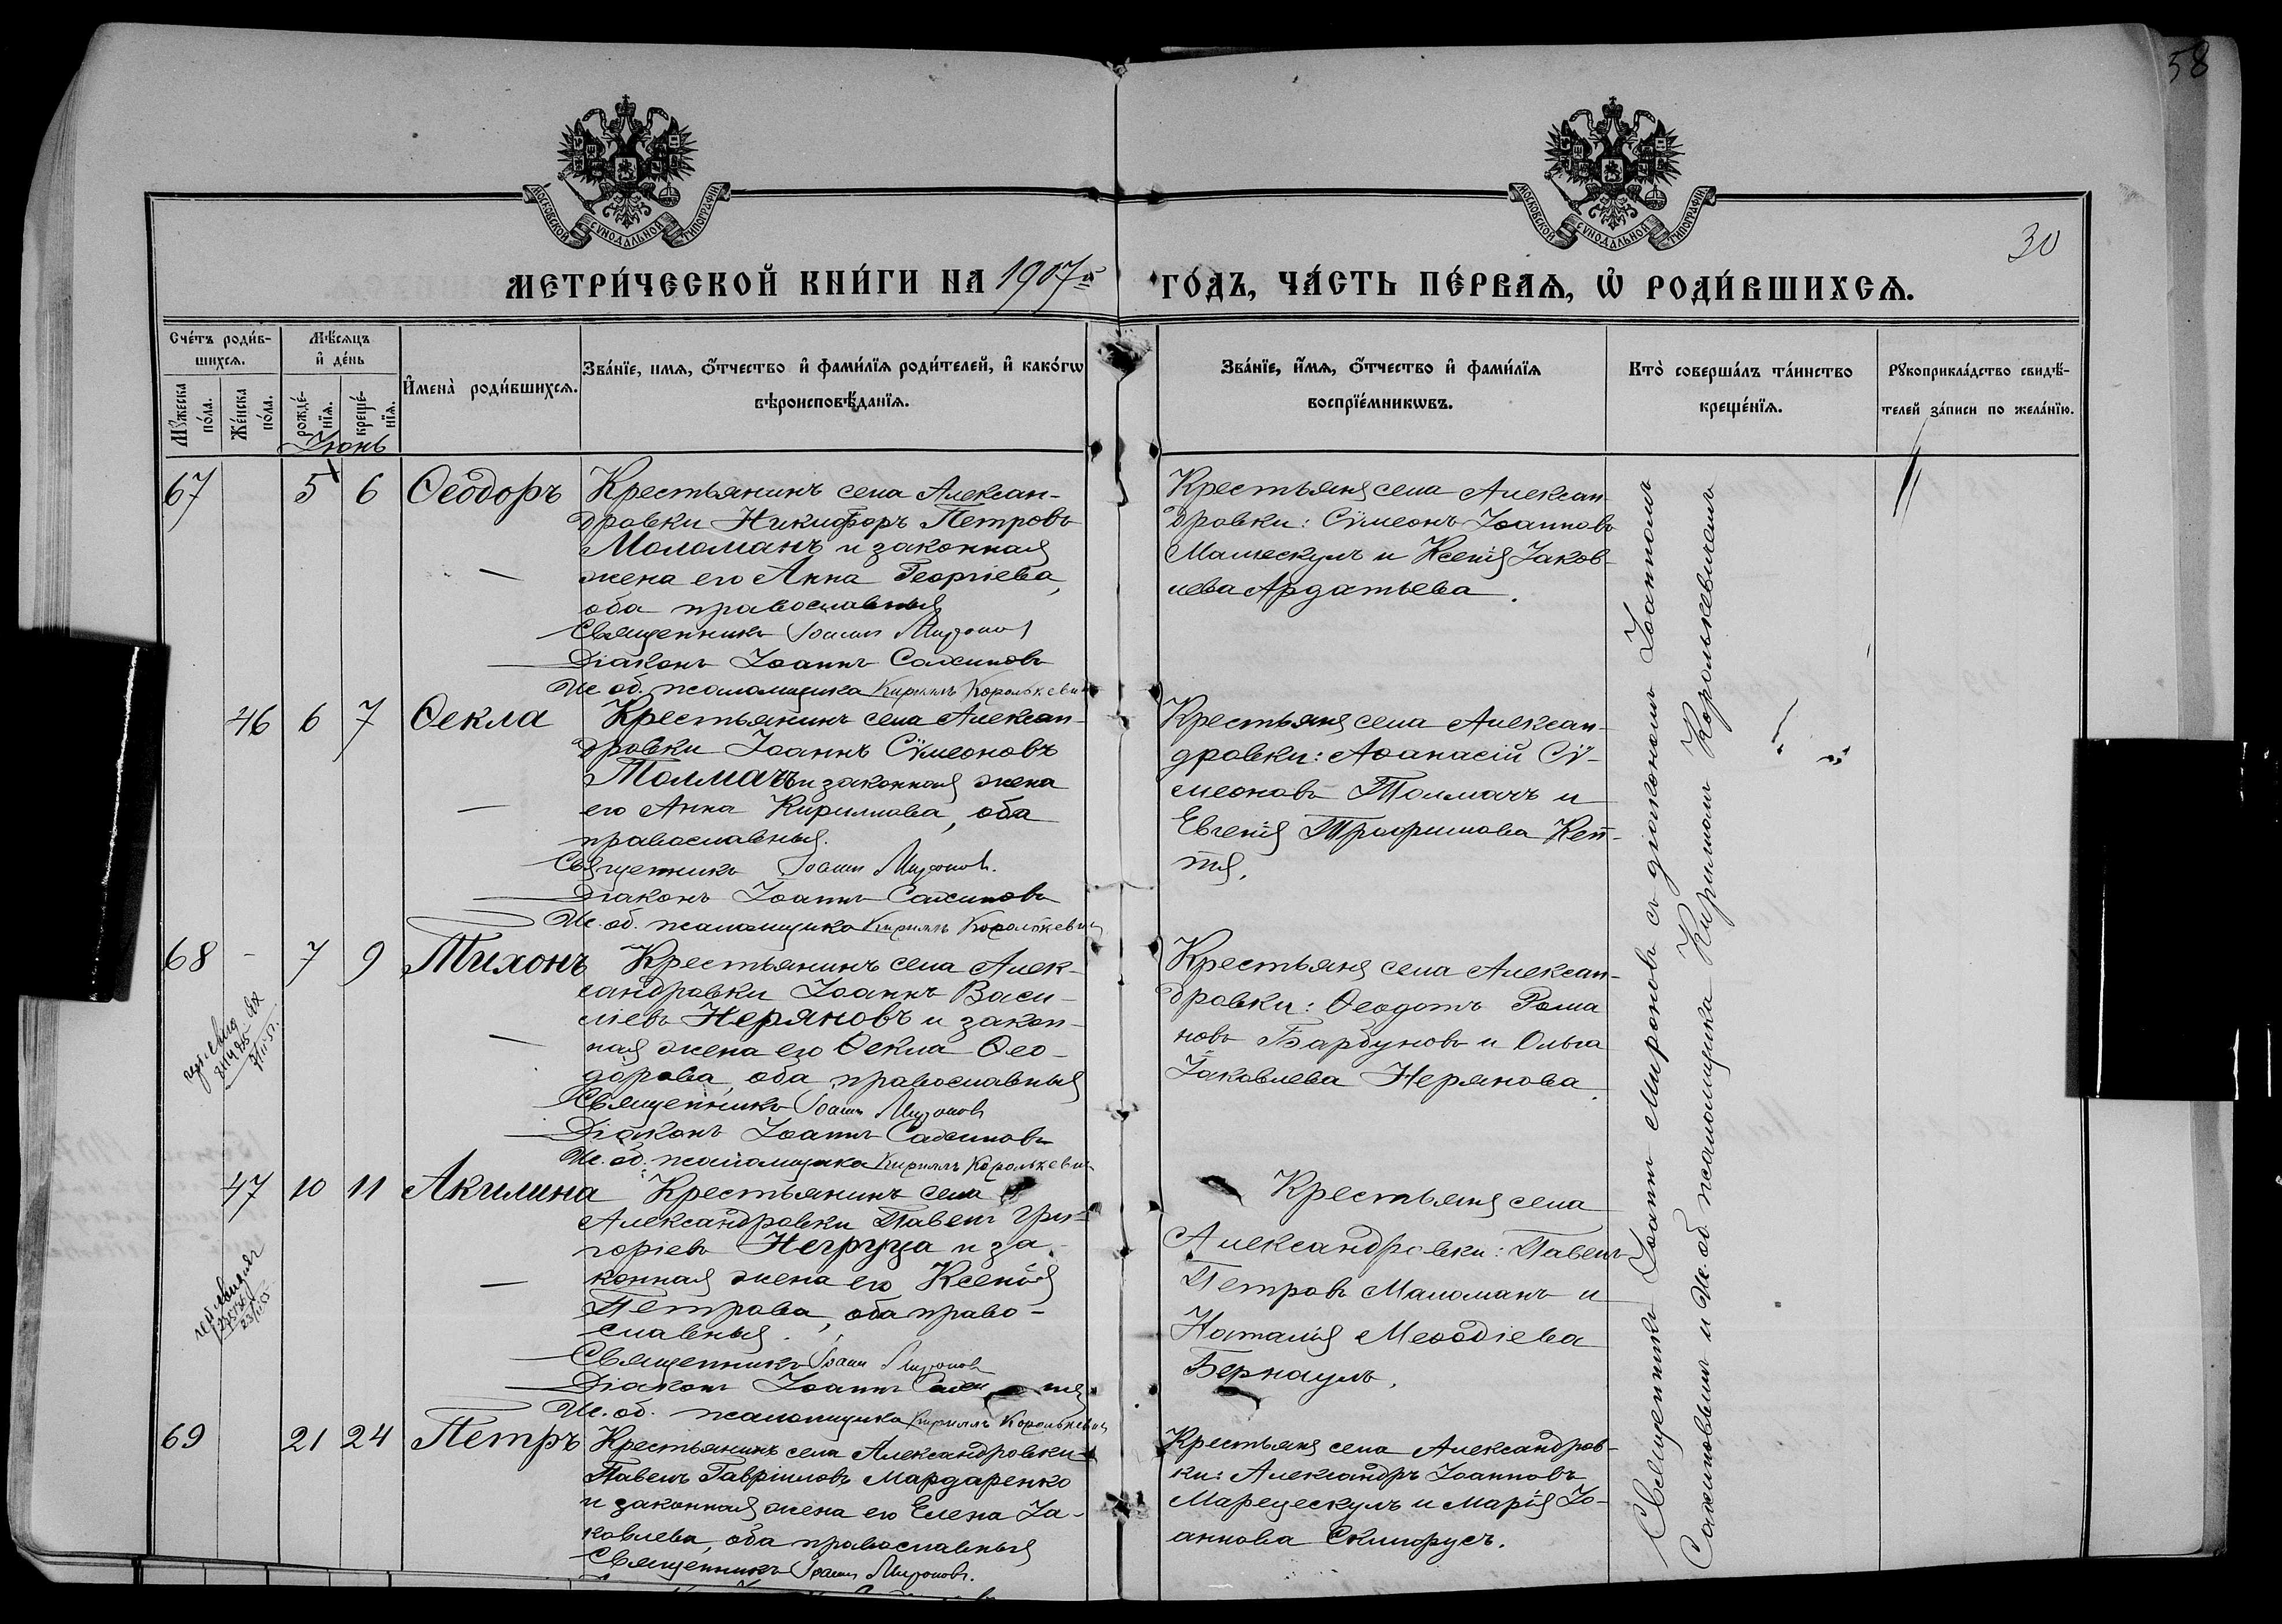 58
МОСКОВСКОЙ СѴНОДАЛЬНОЙ ТИПОГРАФІИ
МОСКОВСКОЙ СѴНОДАЛЬНОЙ ТИПОГРАФІИ
30
МЕТРИ́ЧЕСКОЙ КНИ́ГИ НА 1907й ГО́ДЪ, ЧА́СТЬ ПЕ́РВАѦ, Ѡ҆ РОДИ́ВШИХСѦ.
Сче́тъ роди́в-
шихсѧ.
Мꙋ́жеска
по́ла.
Же́нска
по́ла.
Мѣ́сѧцъ
и҆ де́нь
рожде́-
нїѧ.
креще́-
нїѧ.
Іюнь
И҆мена̀ роди́вшихсѧ.
Зва́нїе, имѧ, ѻ҆́тчество и҆ фами́лїѧ роди́телей, и҆ како́гѡ
вѣроисповѣ́данїѧ.
Зва́нїе, и҆́мѧ, ѻ҆́тчество и҆ фами́лїѧ
воспрїе́мникѡвъ.
Кто̀ соверша́лъ та́инство
креще́нїѧ.
Рꙋкоприкла́дство свидѣ́-
телей за́писи по жела́нїю.
67 5 6 Ѳеодоръ
Крестьянинъ села Алексан-
дровки Никифоръ Петровъ
Моломанъ и законная
жена его Анна Георгіева,
оба православныя
Священникъ Іоаннъ Мироновъ
Діаконъ Іоаннъ
Ис. об. псаломщика Кириллъ Королькевич
Крестьяне села Алексан-
дровки: Сѵмеонъ Іоанновъ
и Ксенія Іаков-
лева Ардатьева.
46 6 7 Ѳекла
Крестьянинъ села Алексан-
дровки Іоаннъ Сѵмеоновъ
Толмачъ и законная жена
его Анна Кириллова, оба
православныя.
Священникъ Іоаннъ Мироновъ.
Діаконъ Іоаннъ
Ис. об. псаломщика Кириллъ Королькевич
Крестьяне села Алексан-
дровки: Аѳанасій Сѵ-
меоновъ Толмачъ и
Евгенія Трофимова
68 - 7 9 Тихонъ
Крестьянинъ села Алек-
сандровки Іоаннъ Васи-
ліевъ Неряновъ и закон-
ная жена его Ѳекла Ѳео-
дорова, оба православныя
Священникъ Іоаннъ Мироновъ
Діаконъ Іоаннъ
Ис. об. псаломщика Кириллъ Королькевич
Крестьяне села Алексан-
дровки: Ѳеодотъ Рома
новъ Барбуновъ и Ольга
Іаковлева Нерянова.
47 10 11 Акилина
Крестьянинъ села
Александровки Павелъ Гри-
горіевъ Негруца и за-
конная жена его Ксенія
Петрова, оба право-
славныя.
Священникъ Іоаннъ Мироновъ
Діаконъ Іоаннъ
Ис. об. псаломщика Кириллъ Королькевич
Крестьяне села
Александровки: Павелъ
Петровъ Маломанъ и
Наталія Меѳодіева
Бернаулъ.
69 21 24 Петръ
Крестьянинъ села Александровки
Павелъ Гавріиловъ Мардаренко
и законная жена его Елена Іа-
ковлева, оба православныя
Священникъ Іоаннъ Мироновъ.
Крестьяне села Александров-
ки: Александръ Іоанновъ
Марецескулъ и Марія Іо-
аннова
Священникъ Іоаннъ Мироновъ съ діакономъ Іоанномъ
и Ис. об псаломщика Кирилломъ Королькевичемъ